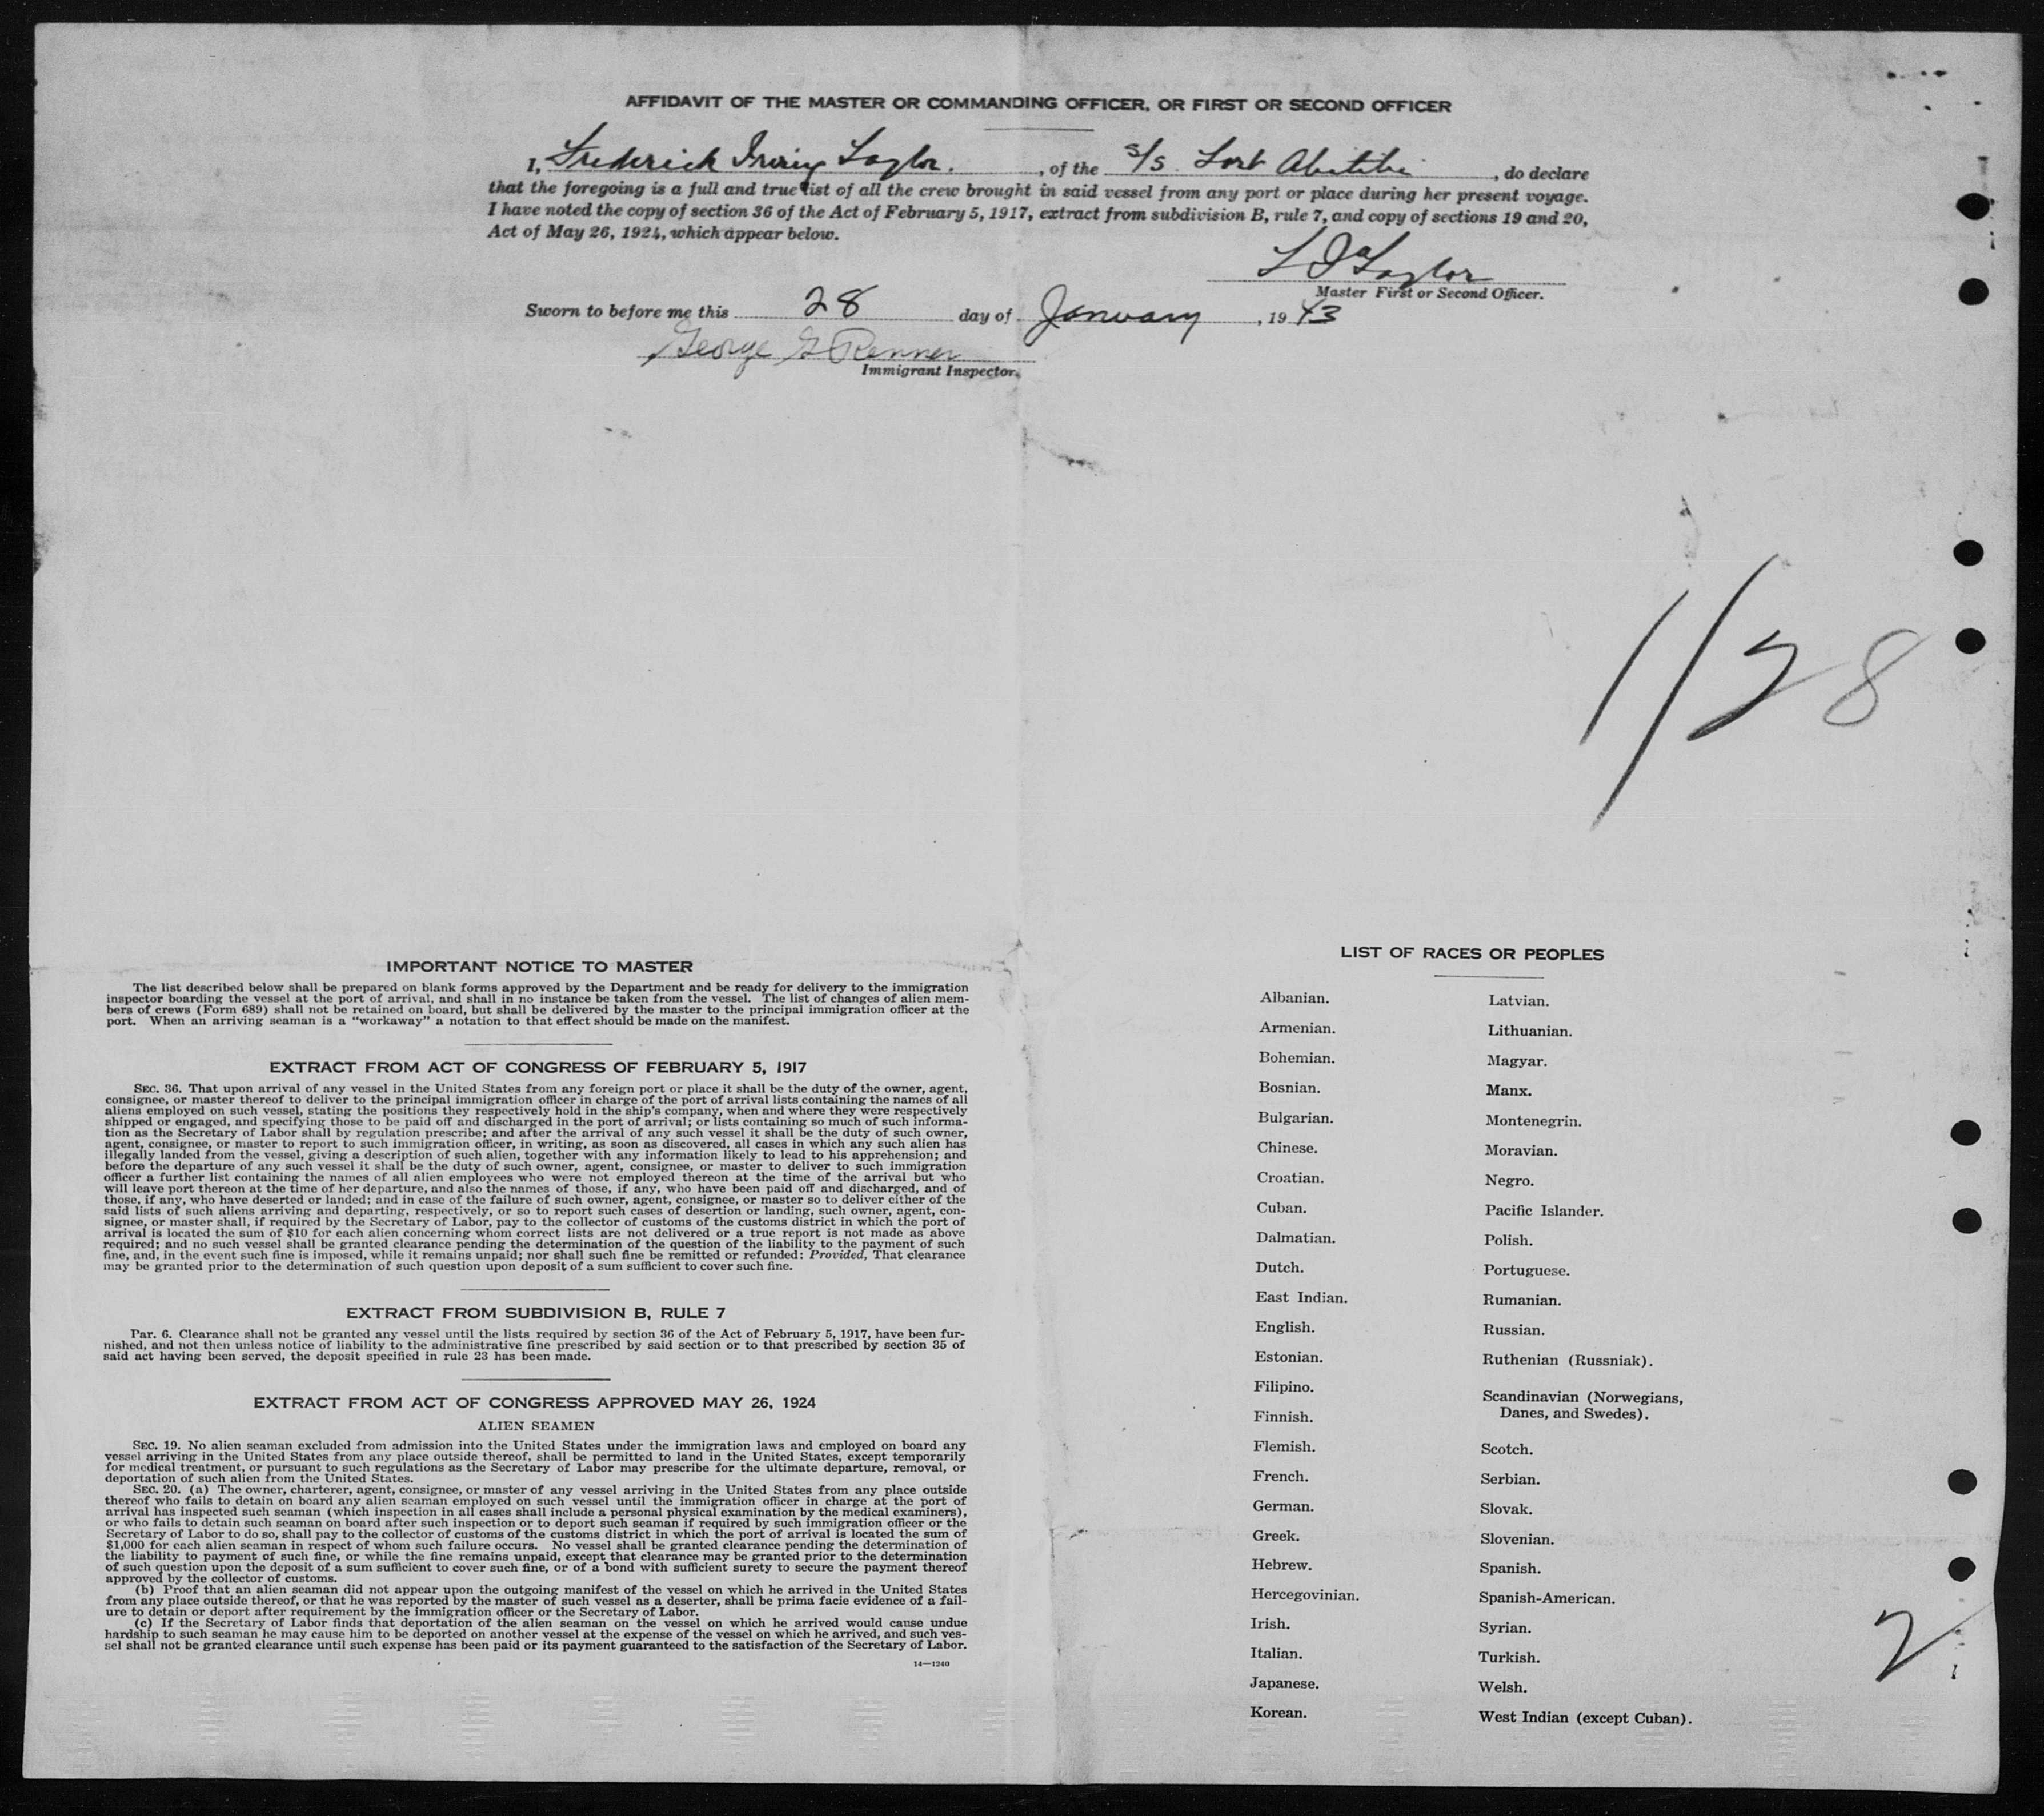 AFFIDAVIT OF THE MASTER OR COMMANDING OFFICER, OR FIRST OR SECOND OFFICER
I, Frederick Irving Taylor. , of the s/s. Fort Abitibi , do declare
that the foregoing is a full and true list of all the crew brought in said vessel from any port or place during her present voyage.
I have noted the copy of section 36 of the Act of February 5, 1917, extract from subdivision B, rule 7, and copy of sections 19 and 20,
Act of May 26, 1924, which appear below.
F I Taylor
Master First or Second Officer.
Sworn to before me this 28 day of January , 19 43
George G Renner
Immigrant Inspector.
1/28
IMPORTANT NOTICE TO MASTER
The list described below shall be prepared on blank forms approved by the Department and be ready for delivery to the immigration
inspector boarding the vessel at the port of arrival, and shall in no instance be taken from the vessel. The list of changes of alien mem-
bers of crews (Form 689) shall not be retained on board, but shall be delivered by the master to the principal immigration officer at the
port. When an arriving seaman is a "workaway" a notation to that effect should be made on the manifest.
EXTRACT FROM ACT OF CONGRESS OF FEBRUARY 5, 1917
SEC. 36. That upon arrival of any vessel in the United States from any foreign port or place it shall be the duty of the owner, agent,
consignee, or master thereof to deliver to the principal immigration officer in charge of the port of arrival lists containing the names of all
aliens employed on such vessel, stating the positions they respectively hold in the ship's company, when and where they were respectively
shipped or engaged, and specifying those to be paid off and discharged in the port of arrival; or lists containing so much of such informa-
tion as the Secretary of Labor shall by regulation prescribe; and after the arrival of any such vessel it shall be the duty of such owner,
agent, consignee, or master to report to such immigration officer, in writing, as soon as discovered, all cases in which any such alien has
illegally landed from the vessel, giving a description of such alien, together with any information likely to lead to his apprehension; and
before the departure of any such vessel it shall be the duty of such owner, agent, consignee, or master to deliver to such immigration
officer a further list containing the names of all alien employees who were not employed thereon at the time of the arrival but who
will leave port thereon at the time of her departure, and also the names of those, if any, who have been paid off and discharged, and of
those, if any, who have deserted or landed; and in case of the failure of such owner, agent, consignee, or master so to deliver either of the
said lists of such aliens arriving and departing, respectively, or so to report such cases of desertion or landing, such owner, agent, con-
signee, or master shall, if required by the Secretary of Labor, pay to the collector of customs of the customs district in which the port of
arrival is located the sum of $10 for each alien concerning whom correct lists are not delivered or a true report is not made as above
required; and no such vessel shall be granted clearance pending the determination of the question of the liability to the payment of such
fine, and, in the event such fine is imposed, while it remains unpaid; nor shall such fine be remitted or refunded: Provided, That clearance
may be granted prior to the determination of such question upon deposit of a sum sufficient to cover such fine.
EXTRACT FROM SUBDIVISION B, RULE 7
Par. 6. Clearance shall not be granted any vessel until the lists required by section 36 of the Act of February 5, 1917, have been fur-
nished, and not then unless notice of liability to the administrative fine prescribed by said section or to that prescribed by section 35 of
said act having been served, the deposit specified in rule 23 has been made.
EXTRACT FROM ACT OF CONGRESS APPROVED MAY 26, 1924
ALIEN SEAMEN
SEC. 19. No alien seaman excluded from admission into the United States under the immigration laws and employed on board any
vessel arriving in the United States from any place outside thereof, shall be permitted to land in the United States, except temporarily
for medical treatment, or pursuant to such regulations as the Secretary of Labor may prescribe for the ultimate departure, removal, or
deportation of such alien from the United States.
SEC. 20. (a) The owner, charterer, agent, consignee, or master of any vessel arriving in the United States from any place outside
thereof who fails to detain on board any alien seaman employed on such vessel until the immigration officer in charge at the port of
arrival has inspected such seaman (which inspection in all cases shall include a personal physical examination by the medical examiners),
or who fails to detain such seaman on board after such inspection or to deport such seaman if required by such immigration officer or the
Secretary of Labor to do so, shall pay to the collector of customs of the customs district in which the port of arrival is located the sum of
$1,000 for each alien seaman in respect of whom such failure occurs. No vessel shall be granted clearance pending the determination of
the liability to payment of such fine, or while the fine remains unpaid, except that clearance may be granted prior to the determination
of such question upon the deposit of a sum sufficient to cover such fine, or of a bond with sufficient surety to secure the payment thereof
approved by the collector of customs.
(b) Proof that an alien seaman did not appear upon the outgoing manifest of the vessel on which he arrived in the United States
from any place outside thereof, or that he was reported by the master of such vessel as a deserter, shall be prima facie evidence of a fail-
ure to detain or deport after requirement by the immigration officer or the Secretary of Labor.
(c) If the Secretary of Labor finds that deportation of the alien seaman on the vessel on which he arrived would cause undue
hardship to such seaman he may cause him to be deported on another vessel at the expense of the vessel on which he arrived, and such ves-
sel shall not be granted clearance until such expense has been paid or its payment guaranteed to the satisfaction of the Secretary of Labor.
14—1240
LIST OF RACES OR PEOPLES
Albanian.
Armenian.
Bohemian.
Bosnian.
Bulgarian.
Chinese.
Croatian.
Cuban.
Dalmatian.
Dutch.
East Indian.
English.
Estonian.
Filipino.
Finnish.
Flemish.
French.
German.
Greek.
Hebrew.
Hercegovinian.
Irish.
Italian.
Japanese.
Korean.
Latvian.
Lithuanian.
Magyar.
Manx.
Montenegrin.
Moravian.
Negro.
Pacific Islander.
Polish.
Portuguese.
Rumanian.
Russian.
Ruthenian (Russniak).
Scandinavian (Norwegians,
Danes, and Swedes).
Scotch.
Serbian.
Slovak.
Slovenian.
Spanish.
Spanish-American.
Syrian.
Turkish.
Welsh.
West Indian (except Cuban).
2